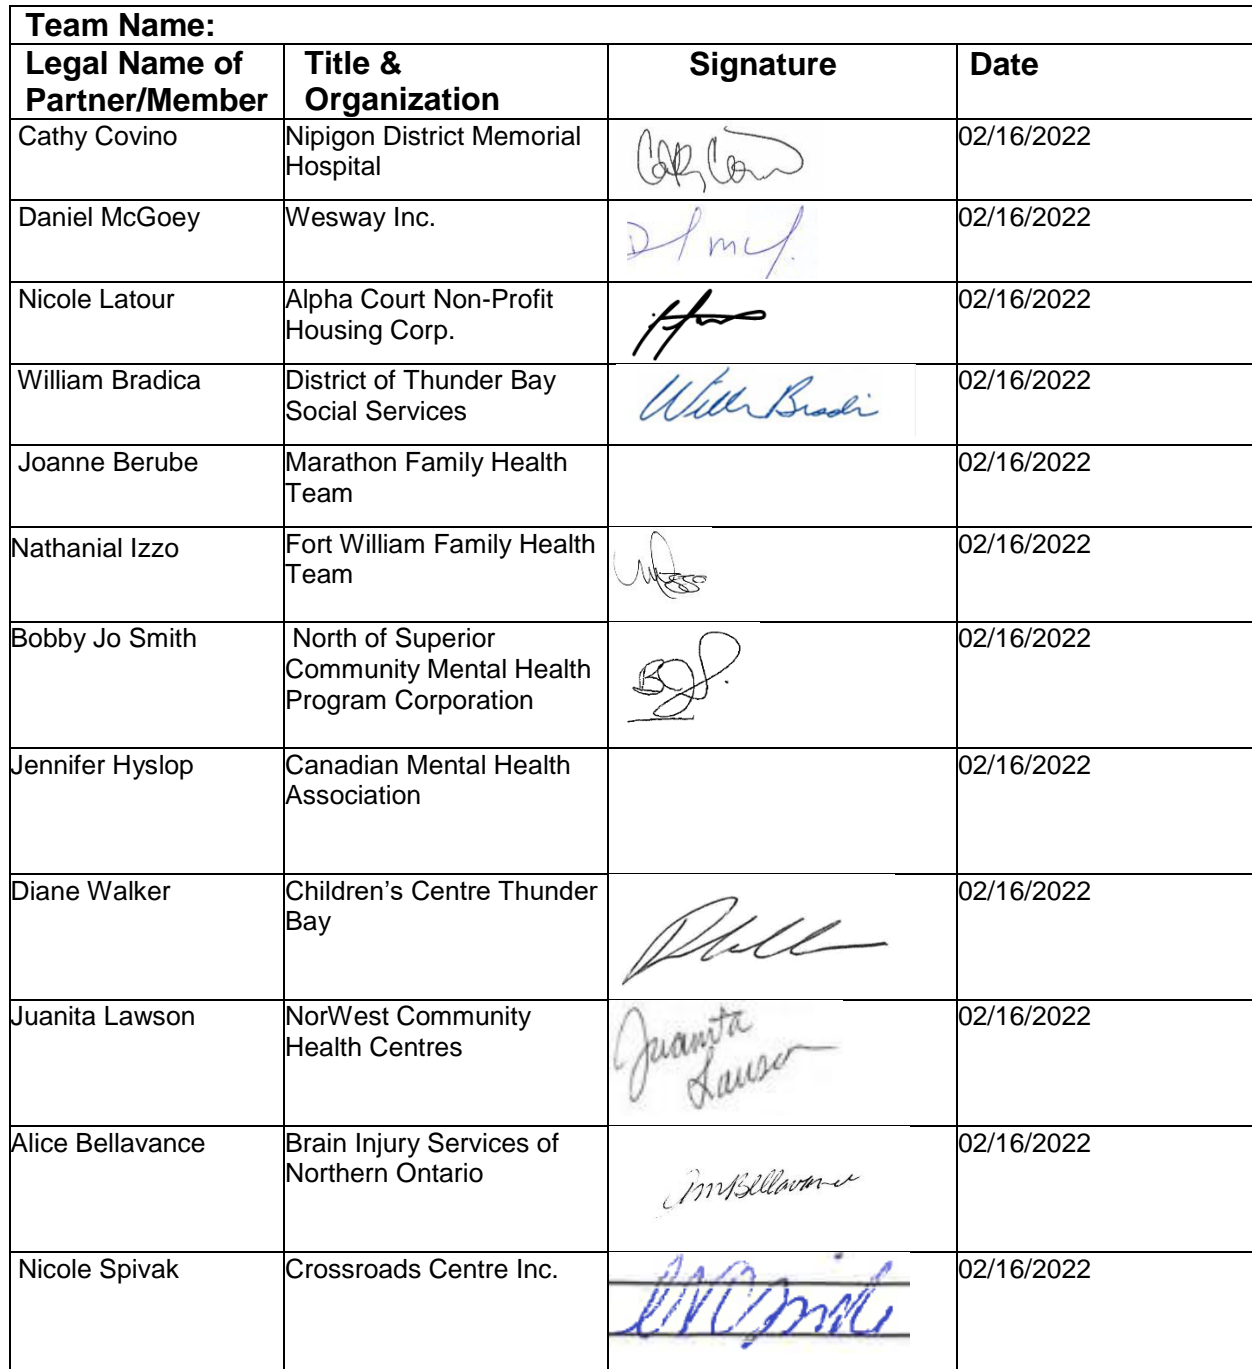 Team Name:
Legal Name of
Partner/Member
Title &
Organization
Signature
Date
Cathy Covino
Nipigon District Memorial
Hospital
02/16/2022
Daniel McGoey
Wesway Inc.
02/16/2022
Nicole Latour
Alpha Court Non-Profit
Housing Corp.
02/16/2022
William Bradica
District of Thunder Bay
Social Services
02/16/2022
Joanne Berube
Marathon Family Health
Team
02/16/2022
Nathanial Izzo
Fort William Family Health
Team
02/16/2022
Bobby Jo Smith
North of Superior
Community Mental Health
Program Corporation
02/16/2022
Jennifer Hyslop
Canadian Mental Health
Association
02/16/2022
Diane Walker
Children’s Centre Thunder
Bay
02/16/2022
Juanita Lawson
NorWest Community
Health Centres
Juanita
Lawson
02/16/2022
Alice Bellavance
Brain Injury Services of
Northern Ontario
02/16/2022
Nicole Spivak
Crossroads Centre Inc.
02/16/2022